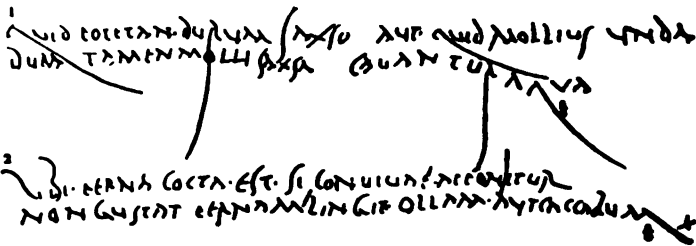 quid pote tan durum saxso aut quid mollius unda
dura tamen molli saxsa cavantur aqua
ubi perna cocta est si convivae apponitur
non gustat pernam lingit ollam aut caccabum